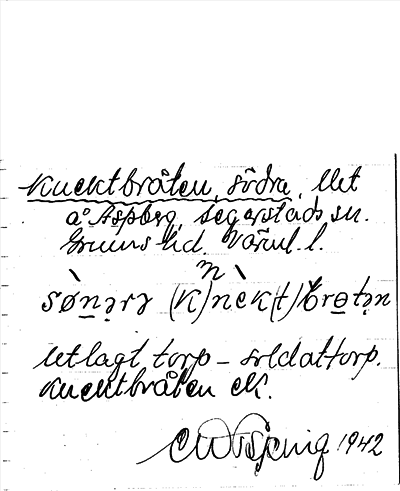 Knektbråten, södra, Utet
å Aspberg, Segerstads sn.
Grums hd. Värml. l.
n
sønərə (k)nèk(t)brətən
Utlagt torp – soldattorp.
Knektbråten ek.
1942